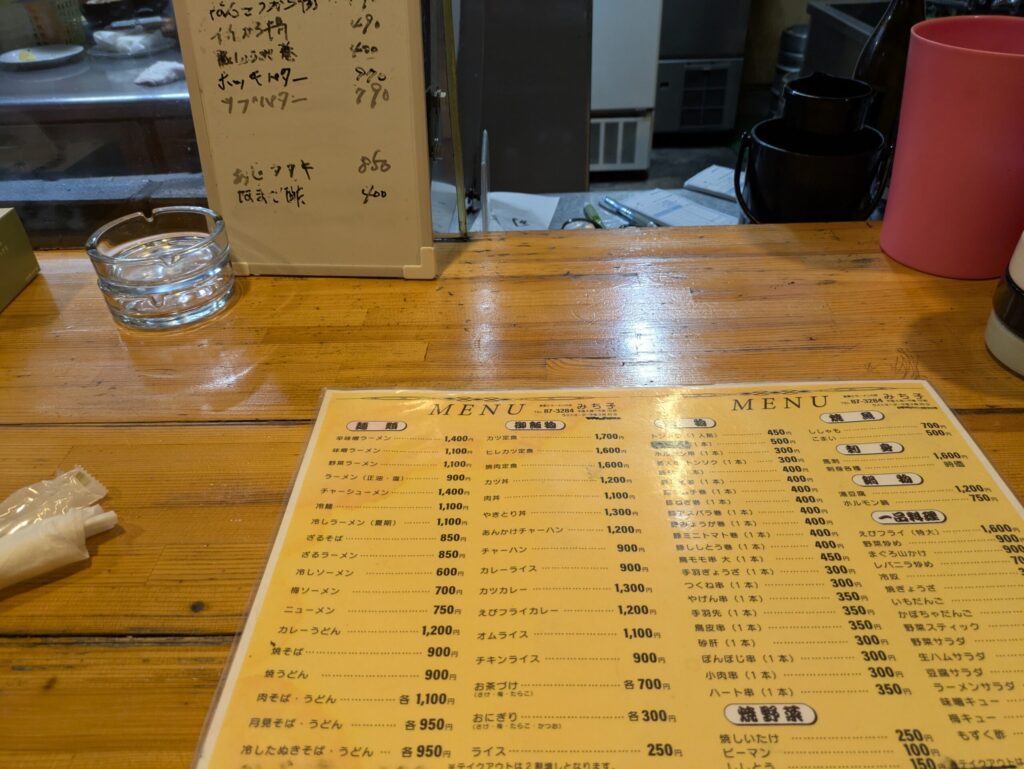 490
400
ホッケバター
790
あじタタキ 850
400
MENU
みち子
TEL 87-3284
麺類
辛味噌ラーメン 1,400円
味噌ラーメン 1,100円
野菜ラーメン 1,100円
ラーメン(正油・塩) 900円
チャーシューメン 1,400円
冷麺 1,100円
冷しラーメン(夏期) 1,100円
ざるそば 850円
ざるラーメン 850円
冷しソーメン 600円
梅ソーメン 700円
ニューメン 750円
カレーうどん 1,200円
焼そば 900円
焼うどん 900円
肉そば・うどん 各1,100円
月見そば・うどん 各950円
冷したぬきそば・うどん 各950円
御飯物
カツ定食 1,700円
ヒレカツ定食 1,600円
焼肉定食 1,600円
カツ丼 1,200円
肉丼 1,100円
やきとり丼 1,300円
あんかけチャーハン 1,200円
チャーハン 900円
カレーライス 900円
カツカレー 1,300円
えびフライカレー 1,200円
オムライス 1,100円
チキンライス 900円
お茶づけ 各700円
(さけ・梅・たらこ)
おにぎり 各300円
(さけ・梅・たらこ・かつお)
ライス 250円
※テイクアウトは2割増しとなります。
MENU
みち子
TEL 87-3284
物
(1人前) 450円
(1本) 500円
ホルモン串(1本) 300円
トンソク(1本) 300円
400円
巻(1本) 400円
巻(1本) 400円
ねぎ巻(1本) 400円
アスパラ巻(1本) 400円
みょうが巻(1本) 400円
豚ミニトマト巻(1本) 400円
豚ししとう巻(1本) 400円
鳥モモ串 大(1本) 450円
手羽ぎょうざ(1本) 300円
つくね串(1本) 300円
やげん串(1本) 350円
手羽先(1本) 350円
鳥皮串(1本) 350円
砂肝(1本) 300円
ぼんぼじ串(1本) 300円
小肉串(1本) 300円
ハート串(1本) 350円
焼野菜
焼しいたけ 250円
ピーマン 100円
ししとう 150円
焼魚
ししゃも 700円
こまい 500円
刺身
馬刺 1,600円
刺身各種 時価
鍋物
湯豆腐 1,200円
ホルモン鍋 750円
一品料理
えびフライ(特大) 1,600円
野菜炒め 900
まぐろ山かけ 900
レバニラ炒め
冷奴
焼ぎょうざ
いもだんご
かぼちゃだんご
野菜スティック
野菜サラダ
生ハムサラダ
豆腐サラダ
ラーメンサラダ
味噌キュー
梅キュー
もずく酢
※テイクアウトは